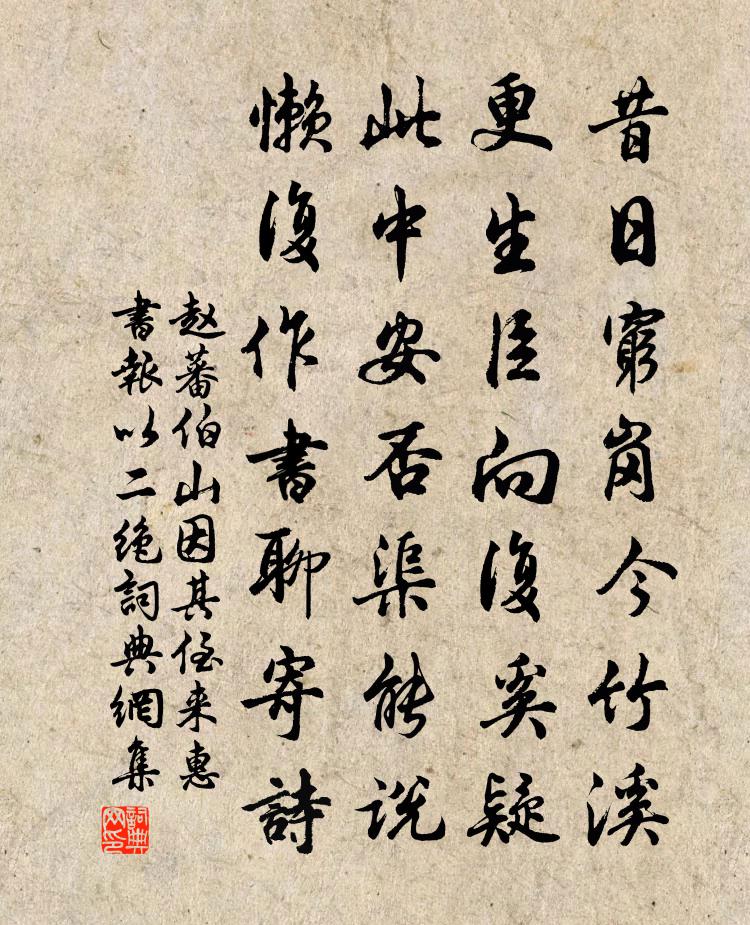 昔日窮岗今竹溪
更生臣向復奚疑
此中安否渠能说
懒復作書聊寄詩
赵蕃伯山因其侄来惠
書報以二绝詞典網集
詞典网印